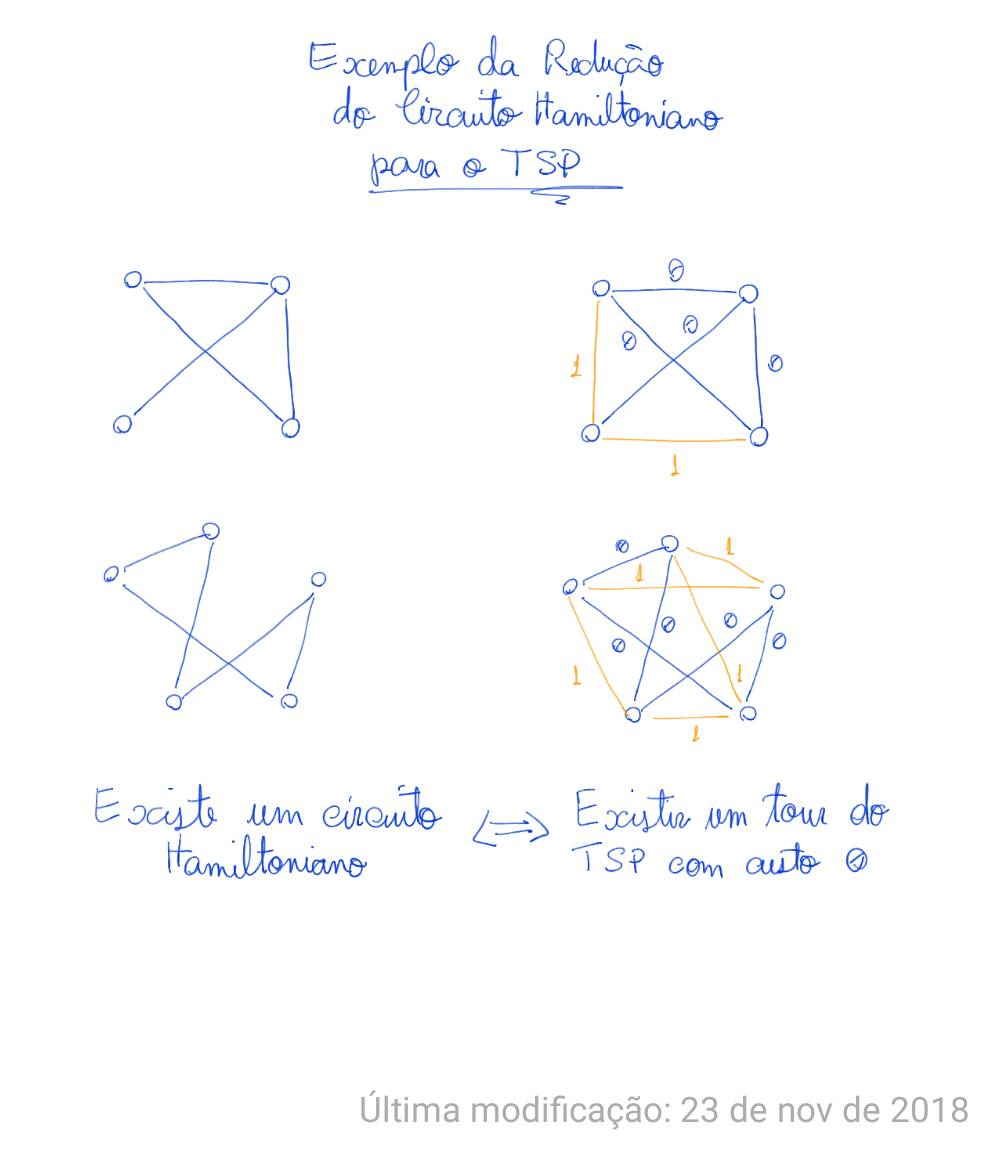 Exemplo da Redução
do Circuito Hamiltoniano
para o TSP
0
0
0
1
0
1
0
1
1
0
0
0
0
1
1
1
Existe um circuito
Hamiltoniano
<=> Existir um tour do
TSP com custo 0
Última modificação: 23 de nov de 2018